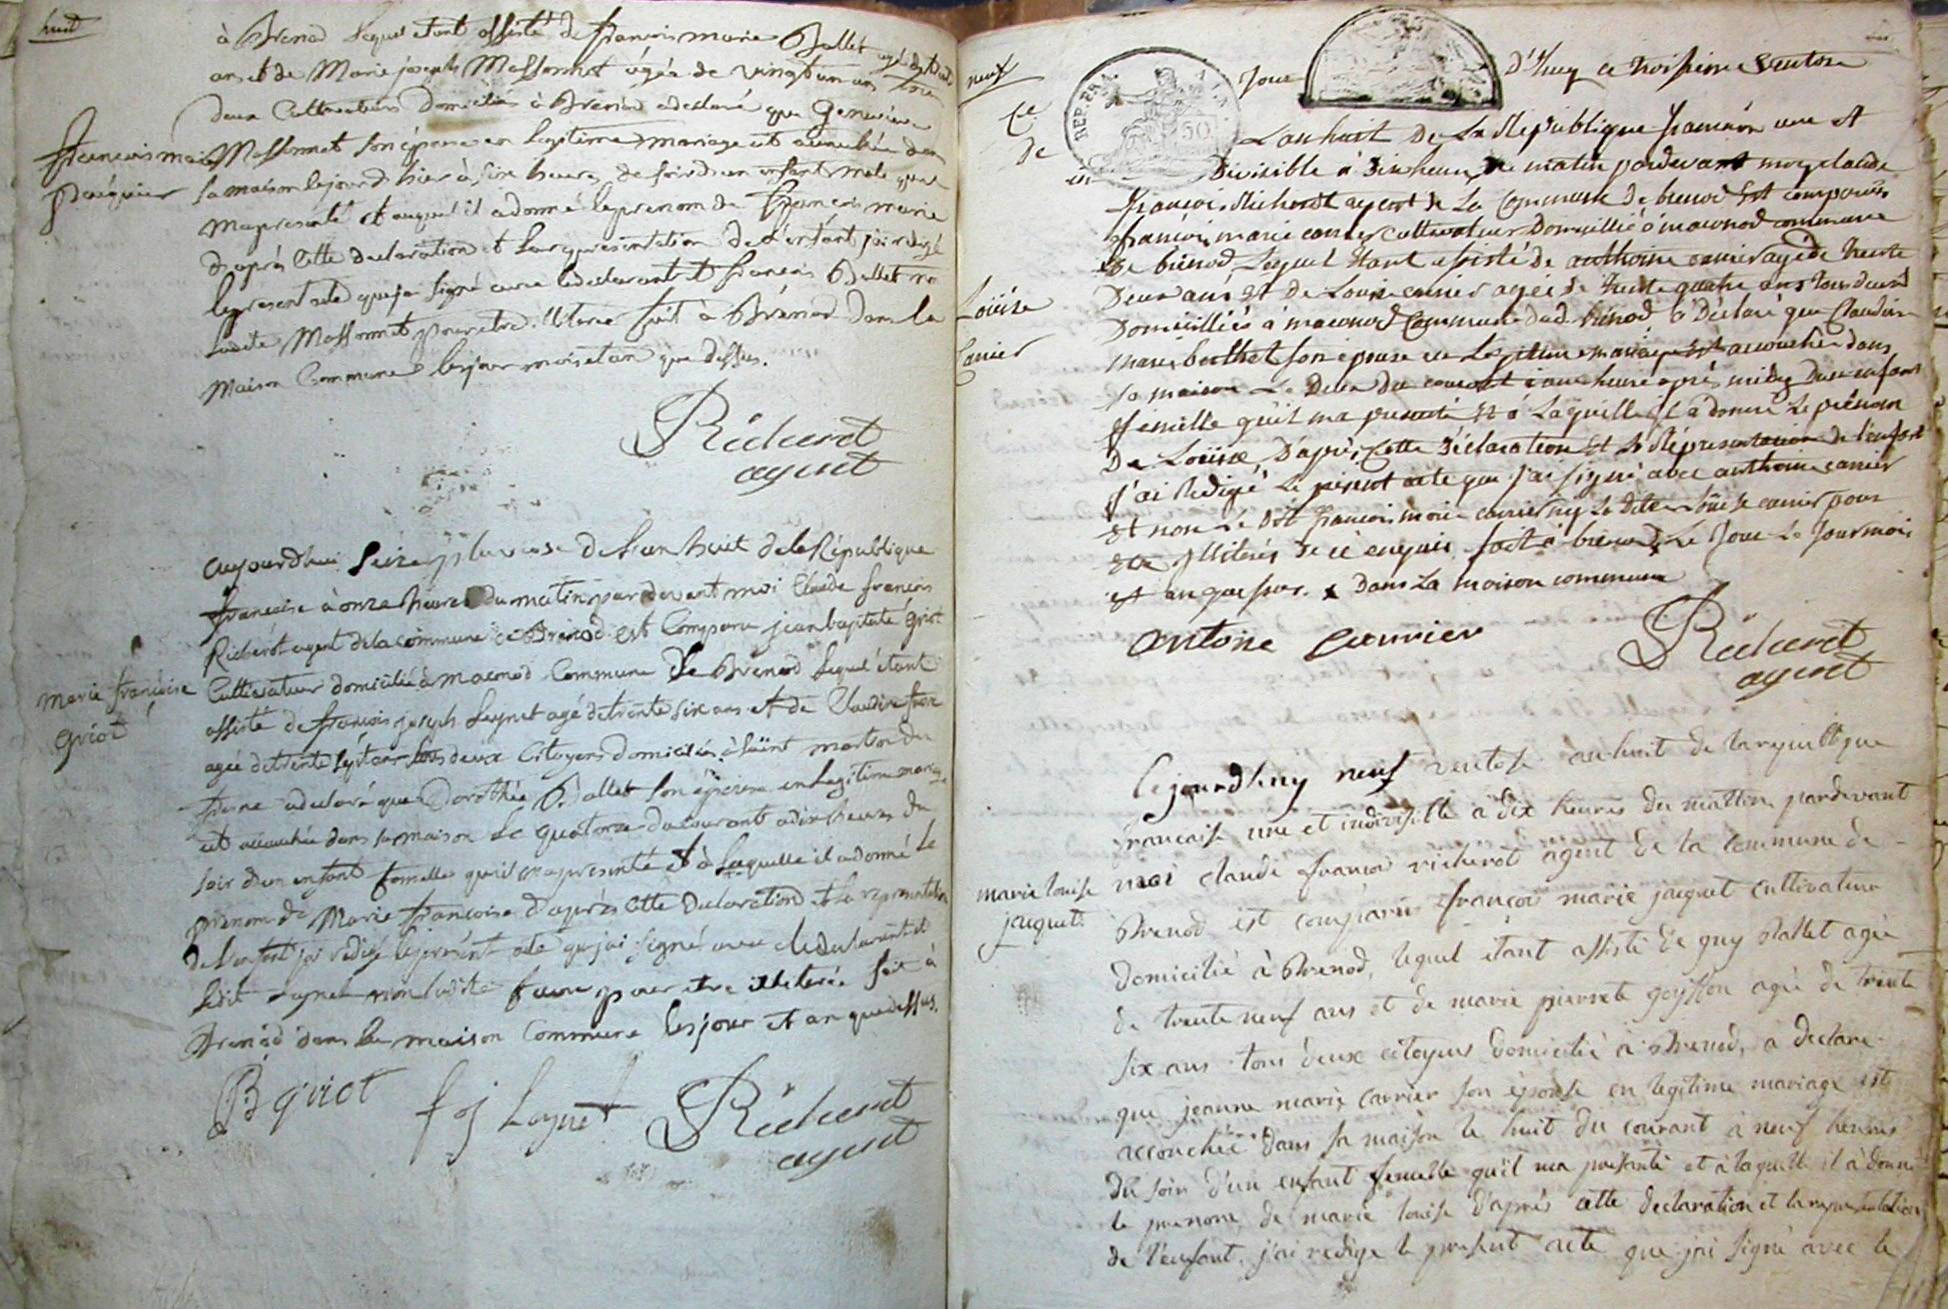 huit
à Brenod lequel etant assisté de françois marie Ballet agé de trente
ans et de Marie joseph Massonnet agéa de vingt un ans tous
deux Cultivateurs domiciliés à Brenod a declaré que Genevieve
françois marie
pasquier
Massonnet son épouse en legitime mariage est accouchée dans
sa maison le jour d'hier à six heures de soir d'un enfant male qu'il
m'a presenté et auquel il a donné le prenom de François marie
d'après cette declaration et la representation de l'enfant j'ai redigé
le present acte que j'ai signé avec le declarant et françois Ballet non
ladite Massonnet pour etre illiterée fait à Brénod dans la
maison Commune les jour mois et an que dessus.
Richerot
agent
aujourdhui seize pluviose de l'an huit de la République
française à onze heures du matin pardevant moi Claude françois
Richerot agent de la commune de Brénod est Comparu jean baptiste griot
marie françoise
griot
Cultivateur domicilié à macnod Commune de Brénod lequel étant
assisté de françois joseph Laynet agé de trente six ans et de Claudine favre
agée de trente sept ans tous deux Citoyens domiciliés à saint martin du
frene a declaré que Dorothée Ballet son épouse en legitime mariage
est accouchée dans sa maison le quatorze du courant a dix heures du
soir d'un enfant femelle qu'il m'a presenté et à laquelle il a donné le
prenom de Marie françoise d'après cette declaration et la representation
de l'enfant j'ai redigé le present acte que j'ai signé avec le declarant et
ledit Laynet non ladite favre pour etre illiterée fait à
Brenod dans la maison Commune les jour et an que dessus.
B griot
f j Laynet
Richerot
agent
neuf
Ce
jour
d'huy ce troisieme ventose
REP. FRA.
50
de
L'an huit De La République francoise une et
indivisible à dix heures de matin pardevant moy claude
françois Richerot agent de La Commune de brenod Est comparu
françois marie carrier cultivateur Domicillié à macconod commune
de brénod Lequel étant assisté de anthoine carrier agé de trente
Louïse
Carrier
Deux ans et de Louise carrier agée de trente quatre ans tous deux
Domicilliés à maconod Commune dud. brénod à Déclaré que Claudine
marie berthet son épouse en Legitime mariage Est accouchée dans
sa maison Le Deux du courant à une heure après midy d'un enfant
femelle qu'il ma presenté Et à Laquelle il à donné Le prénom
De Loüise, D'après Cette Déclaration Et La Répresentation de l'enfant
j'ai Redigé Le present acte que j'ai signé avec anthoine carrier
et non Le dit francois marie carrier ny La dite Loüise carrier pour
etre illiterés de ce enquis fait à brenod Le jour Le jour mois
et an que sus. x dans La maison commune
antoine carrier
Richerot
agent
Cejourd'huy neuf ventose an huit de la republique
francaise une et indivisible à dix heures du mattin pardevant
marie louise
jacquet
moi claude francois richerot agent de la commune de
Brenod est comparu françois marie jacquet cultivateur
domicilié à Brenod, lequel étant assisté de guy Ballet agé
de trente neuf ans et de marie pierrete goyffon agée de trente
six ans tous deux citoyens domicilié à Brenod, a declaré
que jeanne marie carrier son épouse en legitime mariage est
accouchée dans sa maison le huit du courant à neuf heures
du soir d'un enfant femelle qu'il ma presenté et à laquelle il à donné
le prenom de marie louise d'après cette declaration et la representation
de l'enfant, j'ai redigé le present acte que j'ai signé avec le